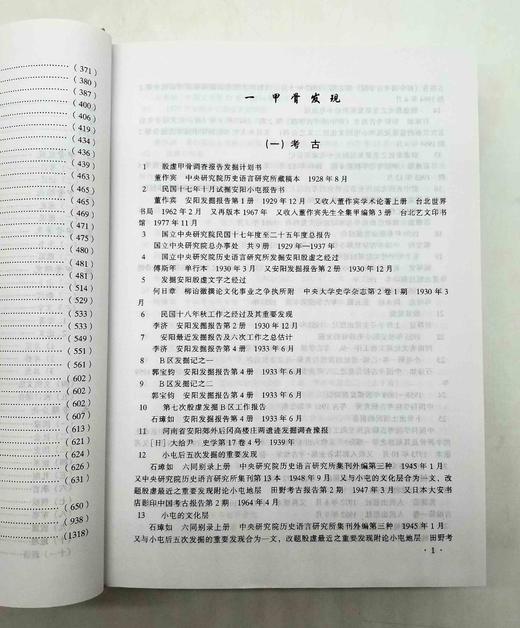 (371)
(380)
(387)
(400)
(406)
(419)
(434)
(436)
(439)
(451)
(464)
(479)
(481)
(481)
(514)
(526)
(533)
(533)
(549)
(551)
(561)
(602)
(602)
(602)
(607)
(613)
(621)
(623)
(626)
(631)
(650)
(938)
(1318)
一 甲骨发现
(一) 考古
1 殷虚甲骨调查报告发掘计划书
董作宾 中央研究院历史语言研究所藏稿本 1928年8月
2 民国十七年十月试掘安阳小屯报告书
董作宾 安阳发掘报告第1册 1929年12月 又收入董作宾学术论著上册 台北世界
书局 1962年2月 又再版本1967年 又收入董作宾先生全集甲编第3册 台北艺文印书
馆 1977年11月
3 国立中央研究院民国十七年度至二十五年度总报告
国立中央研究院总办事处 共9册 1929年—1937年
4 国立中央研究院历史语言研究所发掘安阳殷虚之经过
傅斯年 单行本 1930年3月 又安阳发掘报告第2册 1930年12月
5 发掘安阳殷虚文字之经过
何日章 柳诒徵撰论文化事业之争执所附 中央大学史学杂志第2卷1期 1930年3
月
6 民国十八年秋工作之经过及其重要发现
李济 安阳发掘报告第2册 1930年12月
7 安阳最近发掘报告及六次工作之总估计
李济 安阳发掘报告第4册 1933年6月
8 B区发掘记之一
郭宝钧 安阳发掘报告第4册 1933年6月
9 B区发掘记之二
郭宝钧 安阳发掘报告第4册 1933年6月
10 第七次殷虚发掘B区工作报告
石璋如 安阳发掘报告第4册 1933年6月
11 河南省安阳郊外后冈高楼庄两遗迹发掘调查豫报
[日]大给尹 史学第17卷4号 1939年
12 小屯后五次发掘的重要发现
石璋如 六同别录上册 中央研究院历史语言研究所集刊外编第三种 1945年1月
又中央研究院历史语言研究所集刊第13本 1948年9月 又与小屯的文化层合为一文，改
题殷虚最近之重要发现附论小屯地层 田野考古报告第2册 1947年3月 又日本大安书
店影印中国考古报告第2册 1964年4月
13 小屯的文化层
石璋如 六同别录上册 中央研究院历史语言研究所集刊外编第三种 1945年1月
又与小屯后五次发掘的重要发现合为一文，改题殷虚最近之重要发现附论小屯地层 田野考
·1·